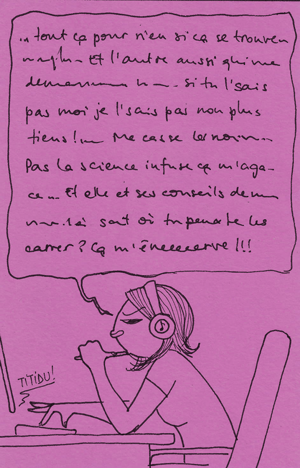 ... tout ça pour rien si ça se trouve
Et l'autre aussi qui me
si tu l'sais
pas moi je l'sais pas non plus
tiens! Me casse les noix...
Pas la science infuse ça m'aga-
ce... Et elle et ses conseils de
sait où tu peux te les
carrer? Ça m'éneeeeerve!!!
TiTiDU!